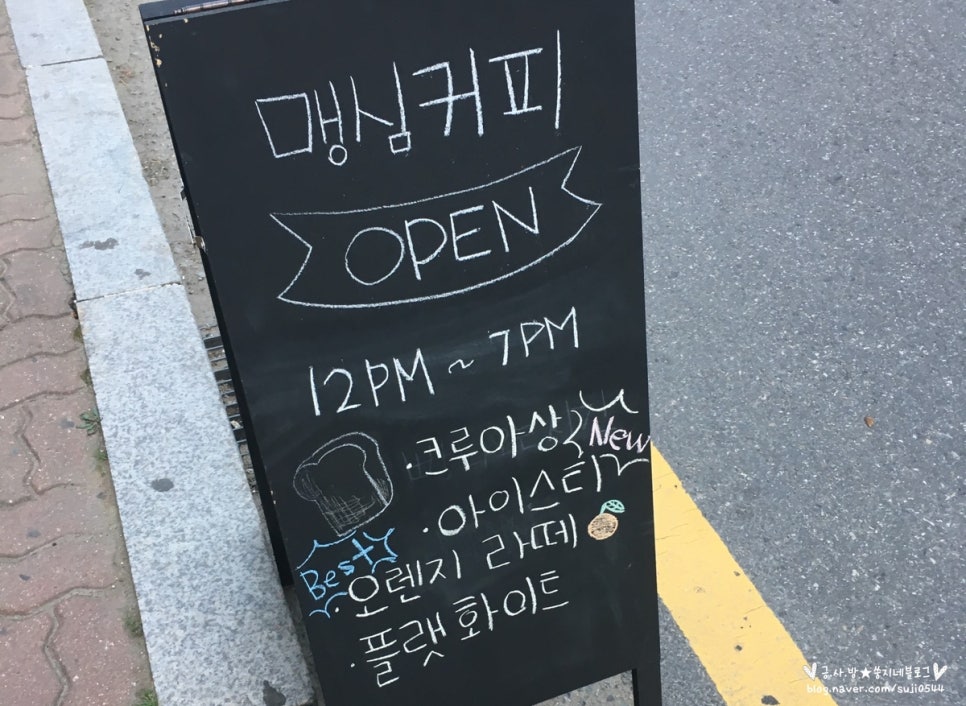 맹심커피
OPEN
12PM ~ 7PM
·크루아상 New
·아이스티
Best
·오렌지 라떼
·플랫화이트
♥금.사.빵★쑹지네블로그♥
blog.naver.com/suji0544